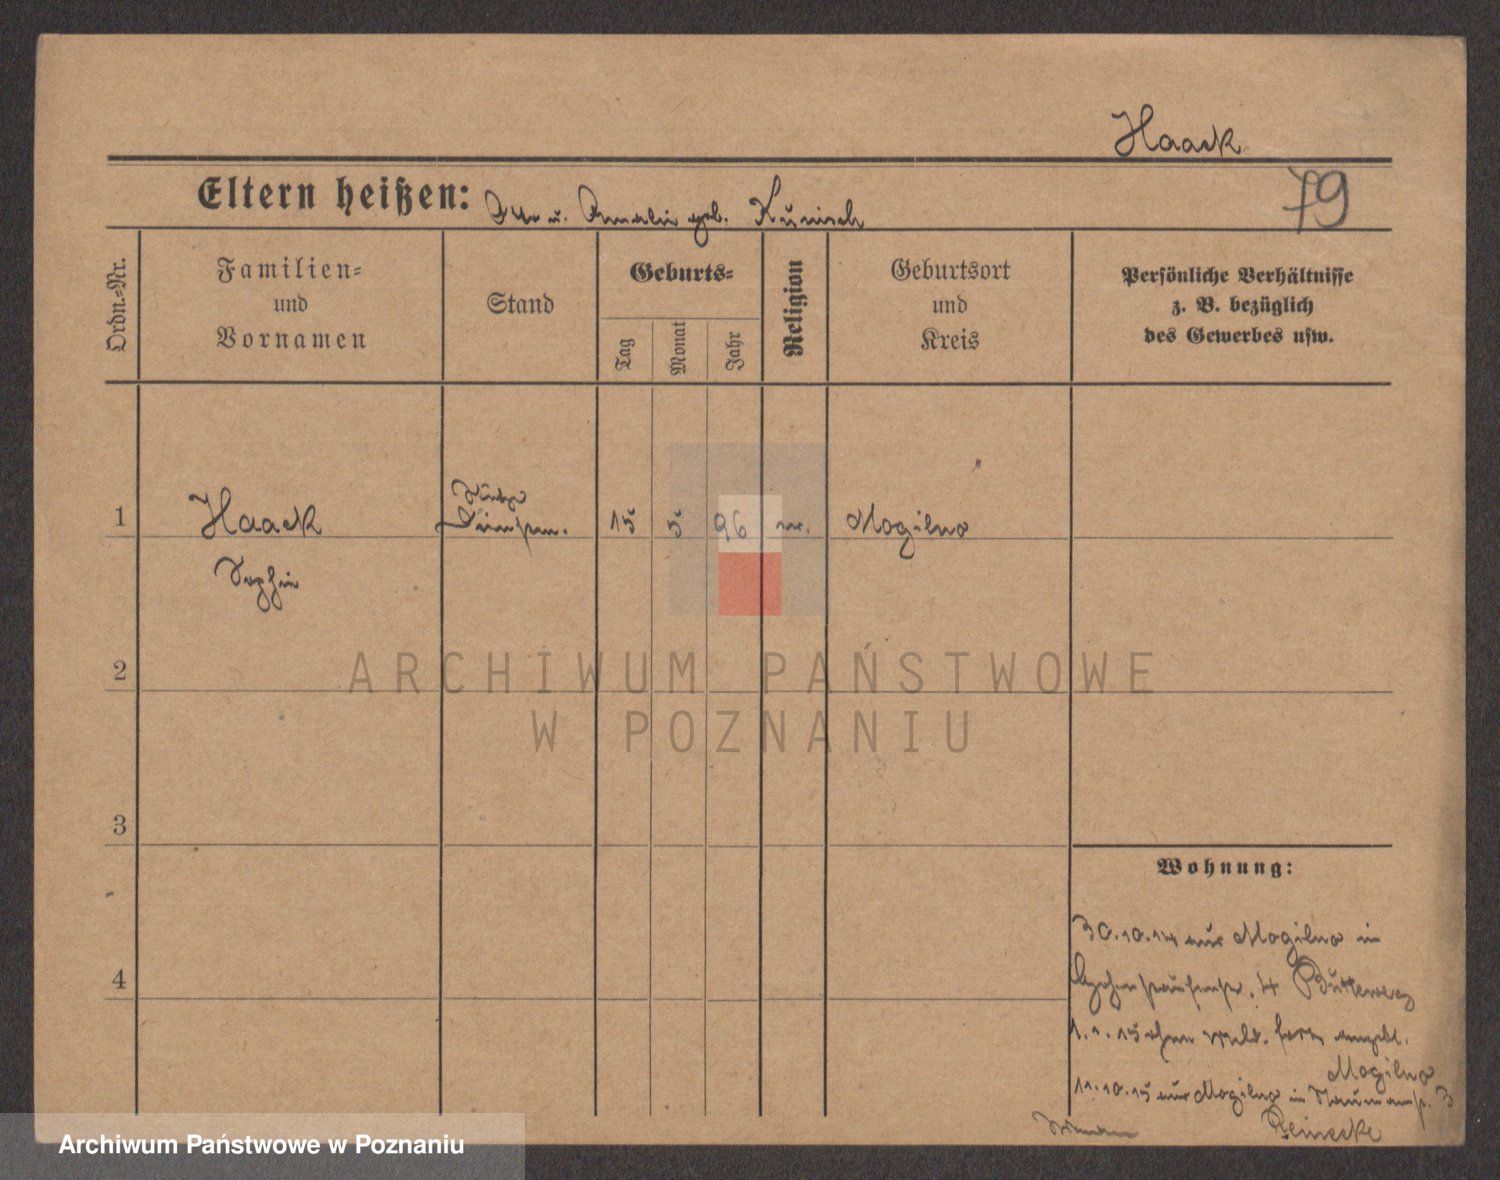 Haack
79
Eltern heißen: Otto u. Amalie geb. Kunisch
Ordn.-Nr.
Familien-
und
Vornamen
Stand
Geburts-
Tag
Monat
Jahr
Religion
Geburtsort
und
Kreis
Persönliche Verhältnisse
z. B. bezüglich
des Gewerbes usw.
1
Haack
15
5
96
Mogilno
Sophie
2
ARCHIWUM PAŃSTWOWE
W POZNANIU
3
Wohnung:
30.10.14 aus Mogilno in
4
4
1.1.15 ohne Meld. fort angebl.
Mogilno
11.10.15 aus Mogilno in Naumannstr. 3
Reinecke
Archiwum Państwowe w Poznaniu